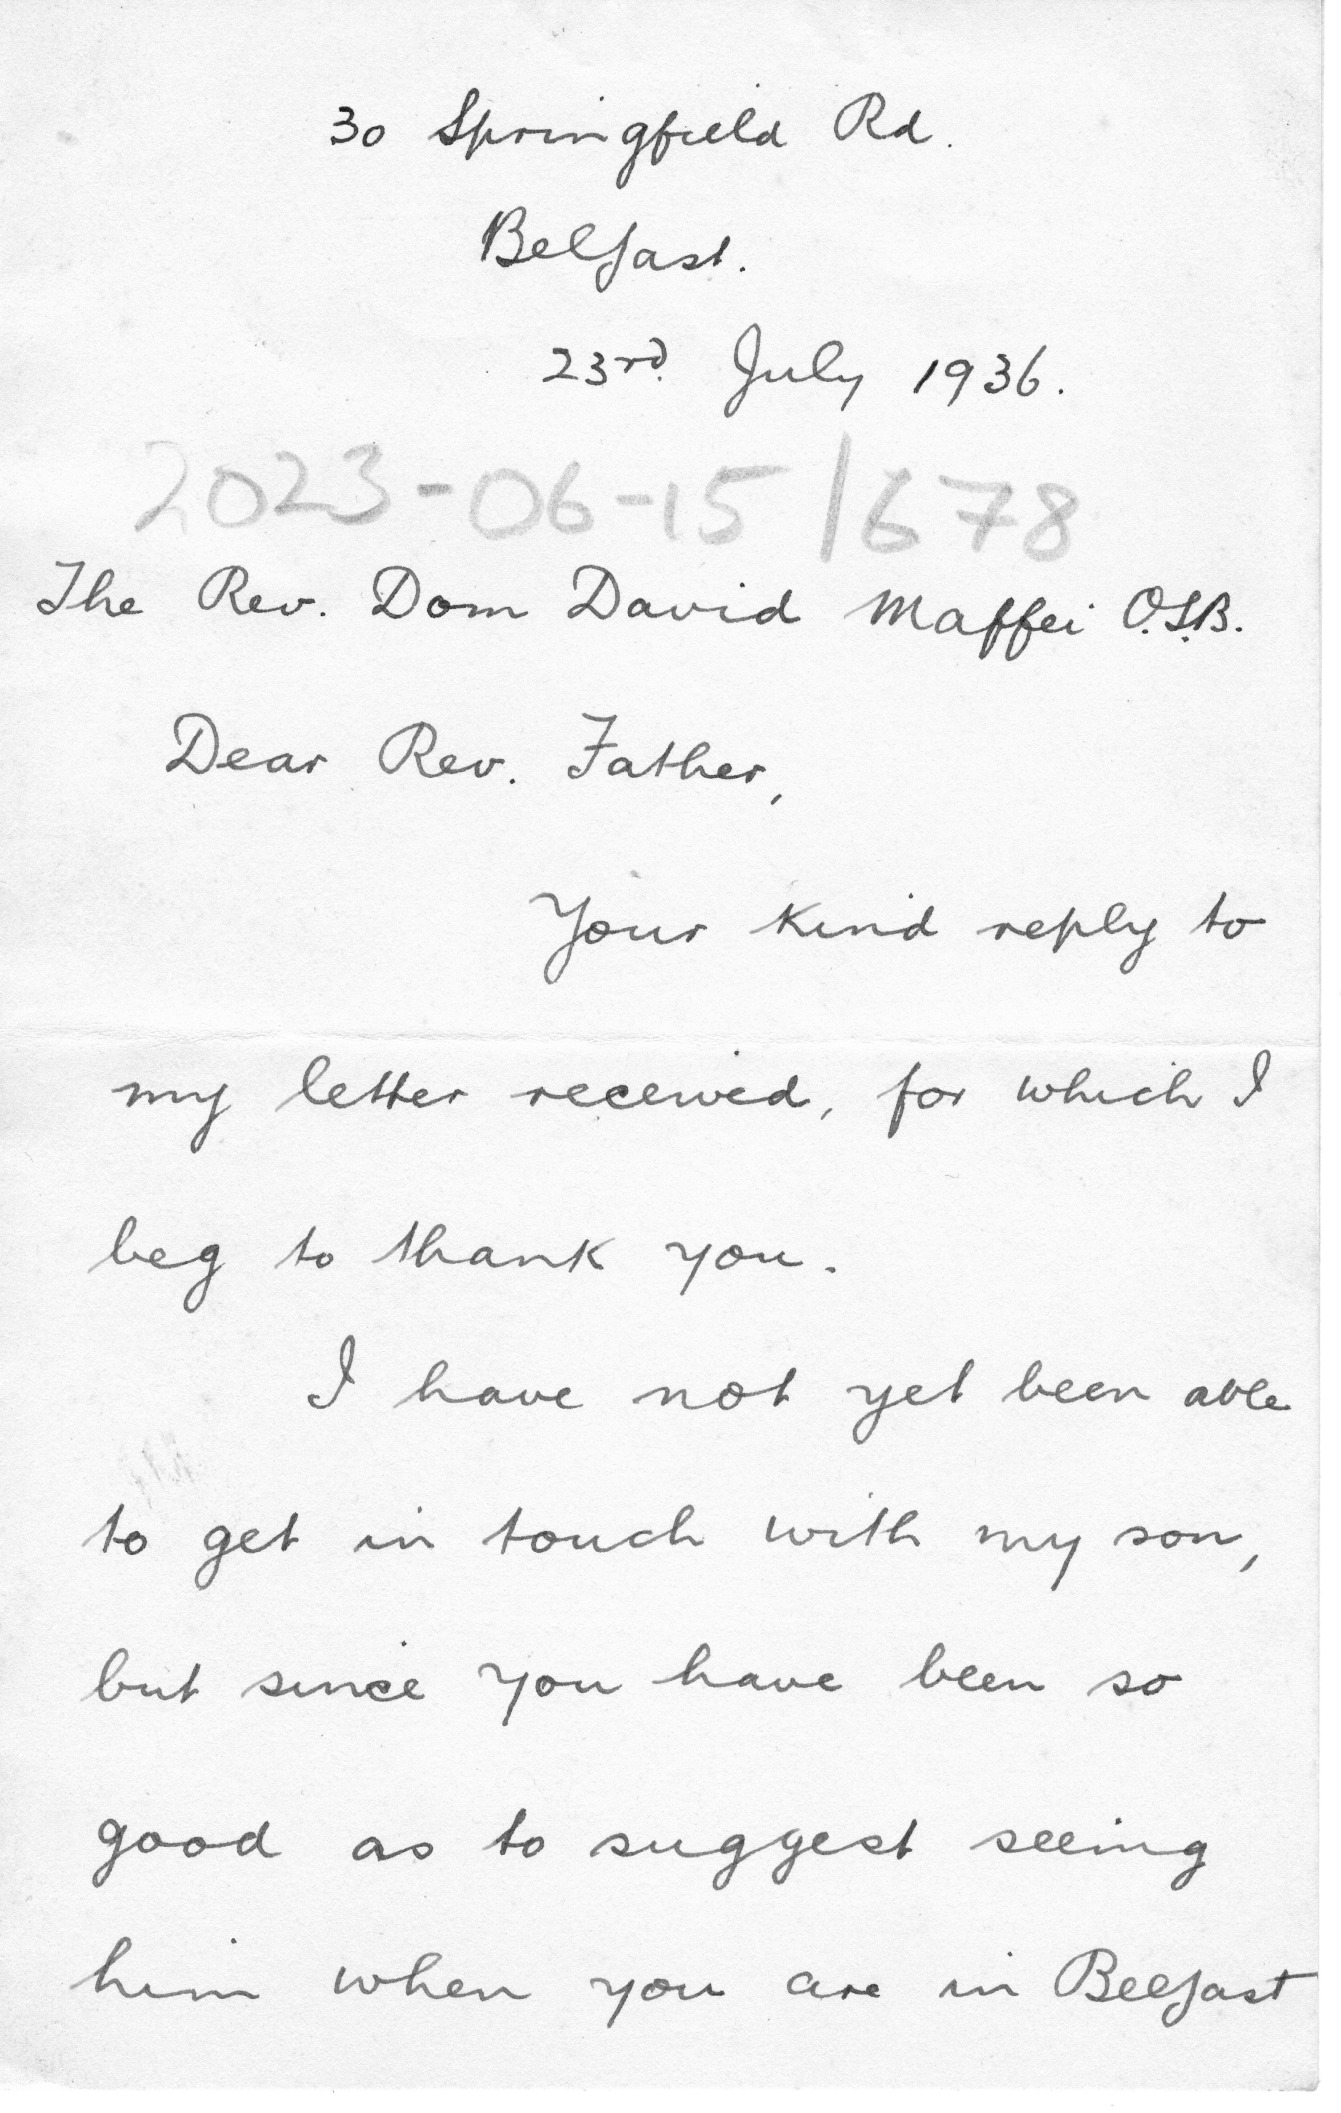 30 Springfield Rd.
Belfast.
23rd. July 1936.
2023-06-15/678
The Rev. Dom David Maffei O.S.B.
Dear Rev. Father,
Your kind reply to
my letter received, for which I
beg to thank you.
I have not yet been able
to get in touch with my son,
but since you have been so
good as to suggest seeing
him when you are in Belfast